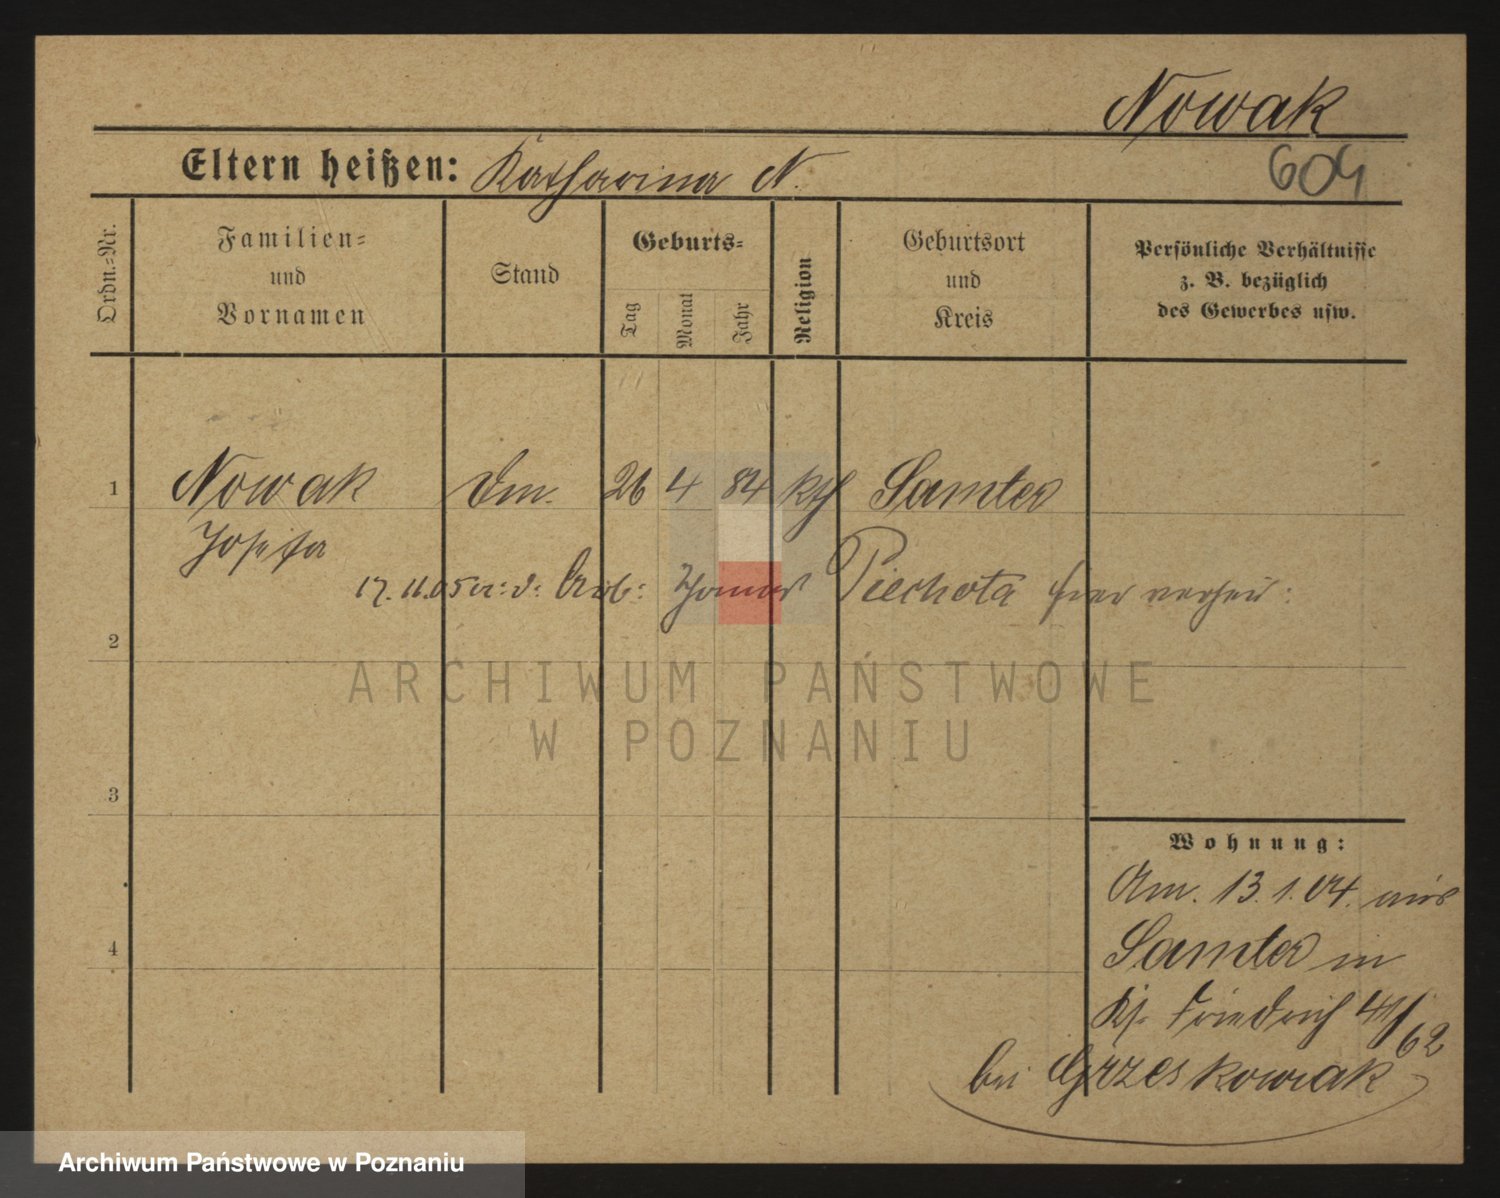 Nowak
604
Eltern heißen: Katharina N.
Ordn.-Nr.
Familien-
und
Vornamen
Stand
Geburts-
Tag
Monat
Jahr
Religion
Geburtsort
und
Kreis
Persönliche Verhältnisse
z. B. bezüglich
des Gewerbes usw.
1 Nowak 26 4 84 kth Samter
Josefa
17. 11. 05 d. Arb: Piechota hier verheir:
2
ARCHIWUM PAŃSTWOWE
W POZNANIU
3
Wohnung:
Am. 13. 1. 04. aus
4
Samter in
Friedrich 41/62
bei Grzeskowiak
Archiwum Państwowe w Poznaniu